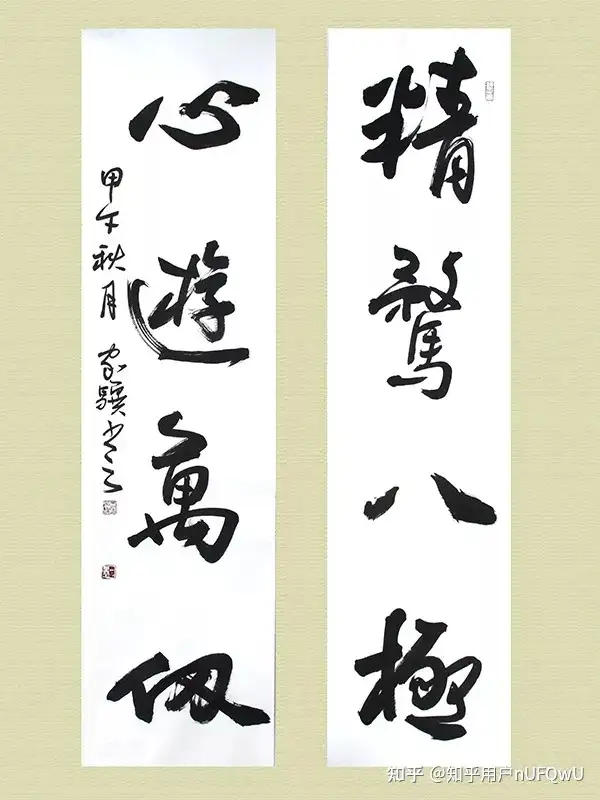 精騖八極
心遊萬仞
甲午秋月 家驥书
知乎 @知乎用户nUFQwU